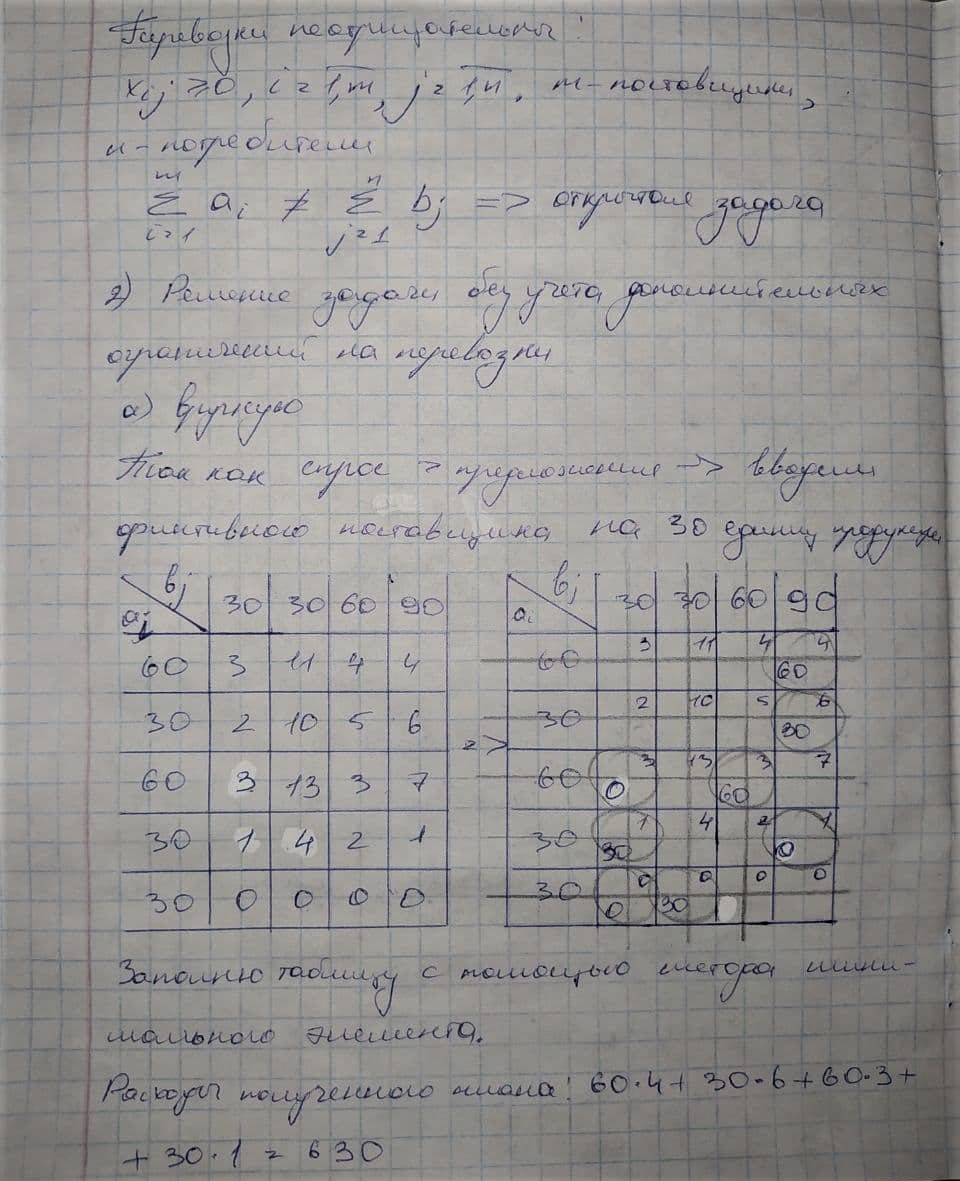 Перевозки неотрицательны:
xij ≥ 0, i = 1,m, j = 1,n, m - поставщики,
n - потребители
m n
Σ ai ≠ Σ bj => открытая задача
i=1 j=1
2) Решение задачи без учета дополнительных
ограничений на перевозки
а) Вручную
Так как спрос > предложения -> вводим
фиктивного поставщика на 30 единиц продукции
bj 30 30 60 90
ai
60 3 11 4 4
30 2 10 5 6
60 3 13 3 7
30 1 4 2 1
30 0 0 0 0
=>
bj 30 30 60 90
ai
60 3 11 4 4
60
30 2 10 5 6
30
60 3 13 3 7
0 60
30 1 4 2 1
30 0
30 0 0 0 0
0 30
Заполню таблицу с помощью метода мини-
мального элемента.
Расходы полученного плана: 60·4 + 30·6 + 60·3 +
+ 30·1 = 630